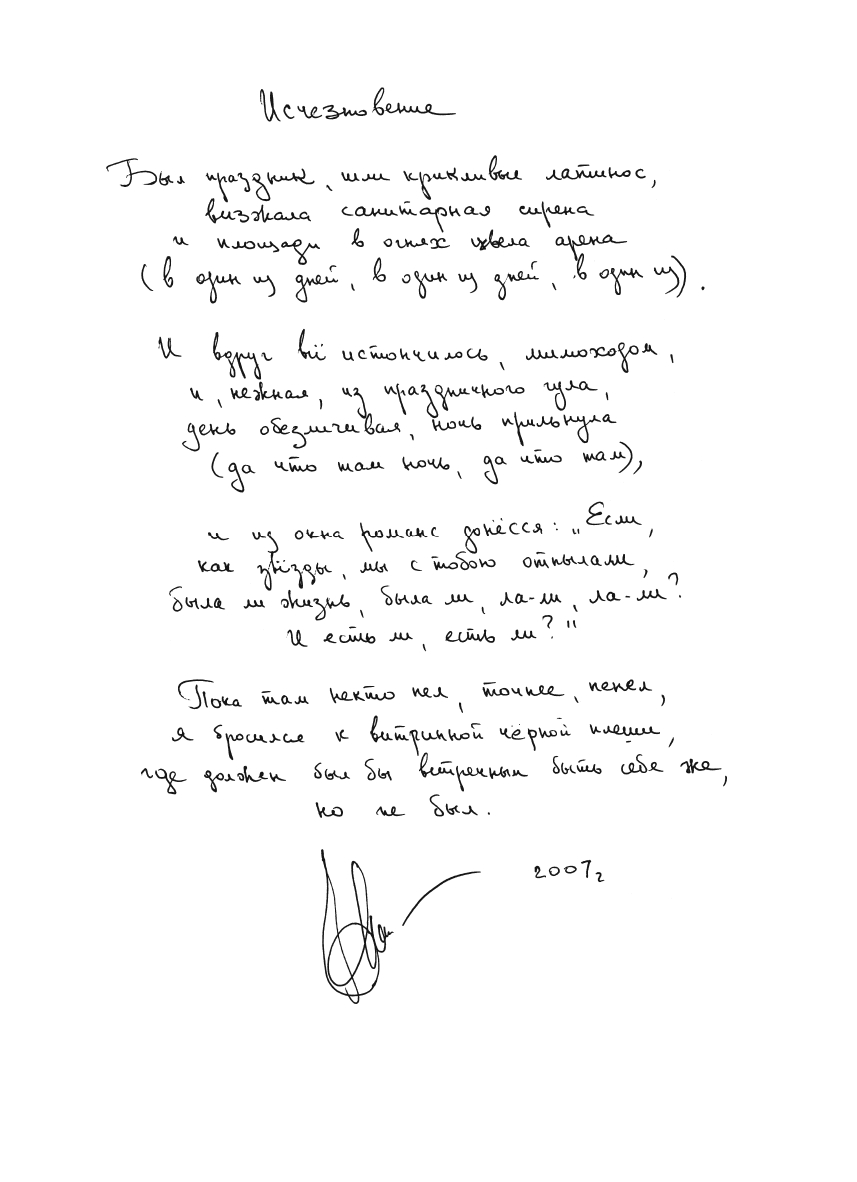 Исчезновение
Был праздник, шли крикливые латинос,
визжала санитарная сирена
и площади в огнях цвела арена
(в один из дней, в один из дней, в один из).
И вдруг всё истончилось, мимоходом,
и, нежная, из праздничного гула,
день обезличивая, ночь прильнула
(да что там ночь, да что там),
и из окна романс донёсся: „Если,
как звёзды, мы с тобою отпылали,
была ли жизнь, была ли, ла-ли, ла-ли?
И есть ли, есть ли?"
Пока там некто пел, точнее, пепел,
я бросился к витринной чёрной плеши,
где должен был бы встречным быть себе же,
но не был.
2007г